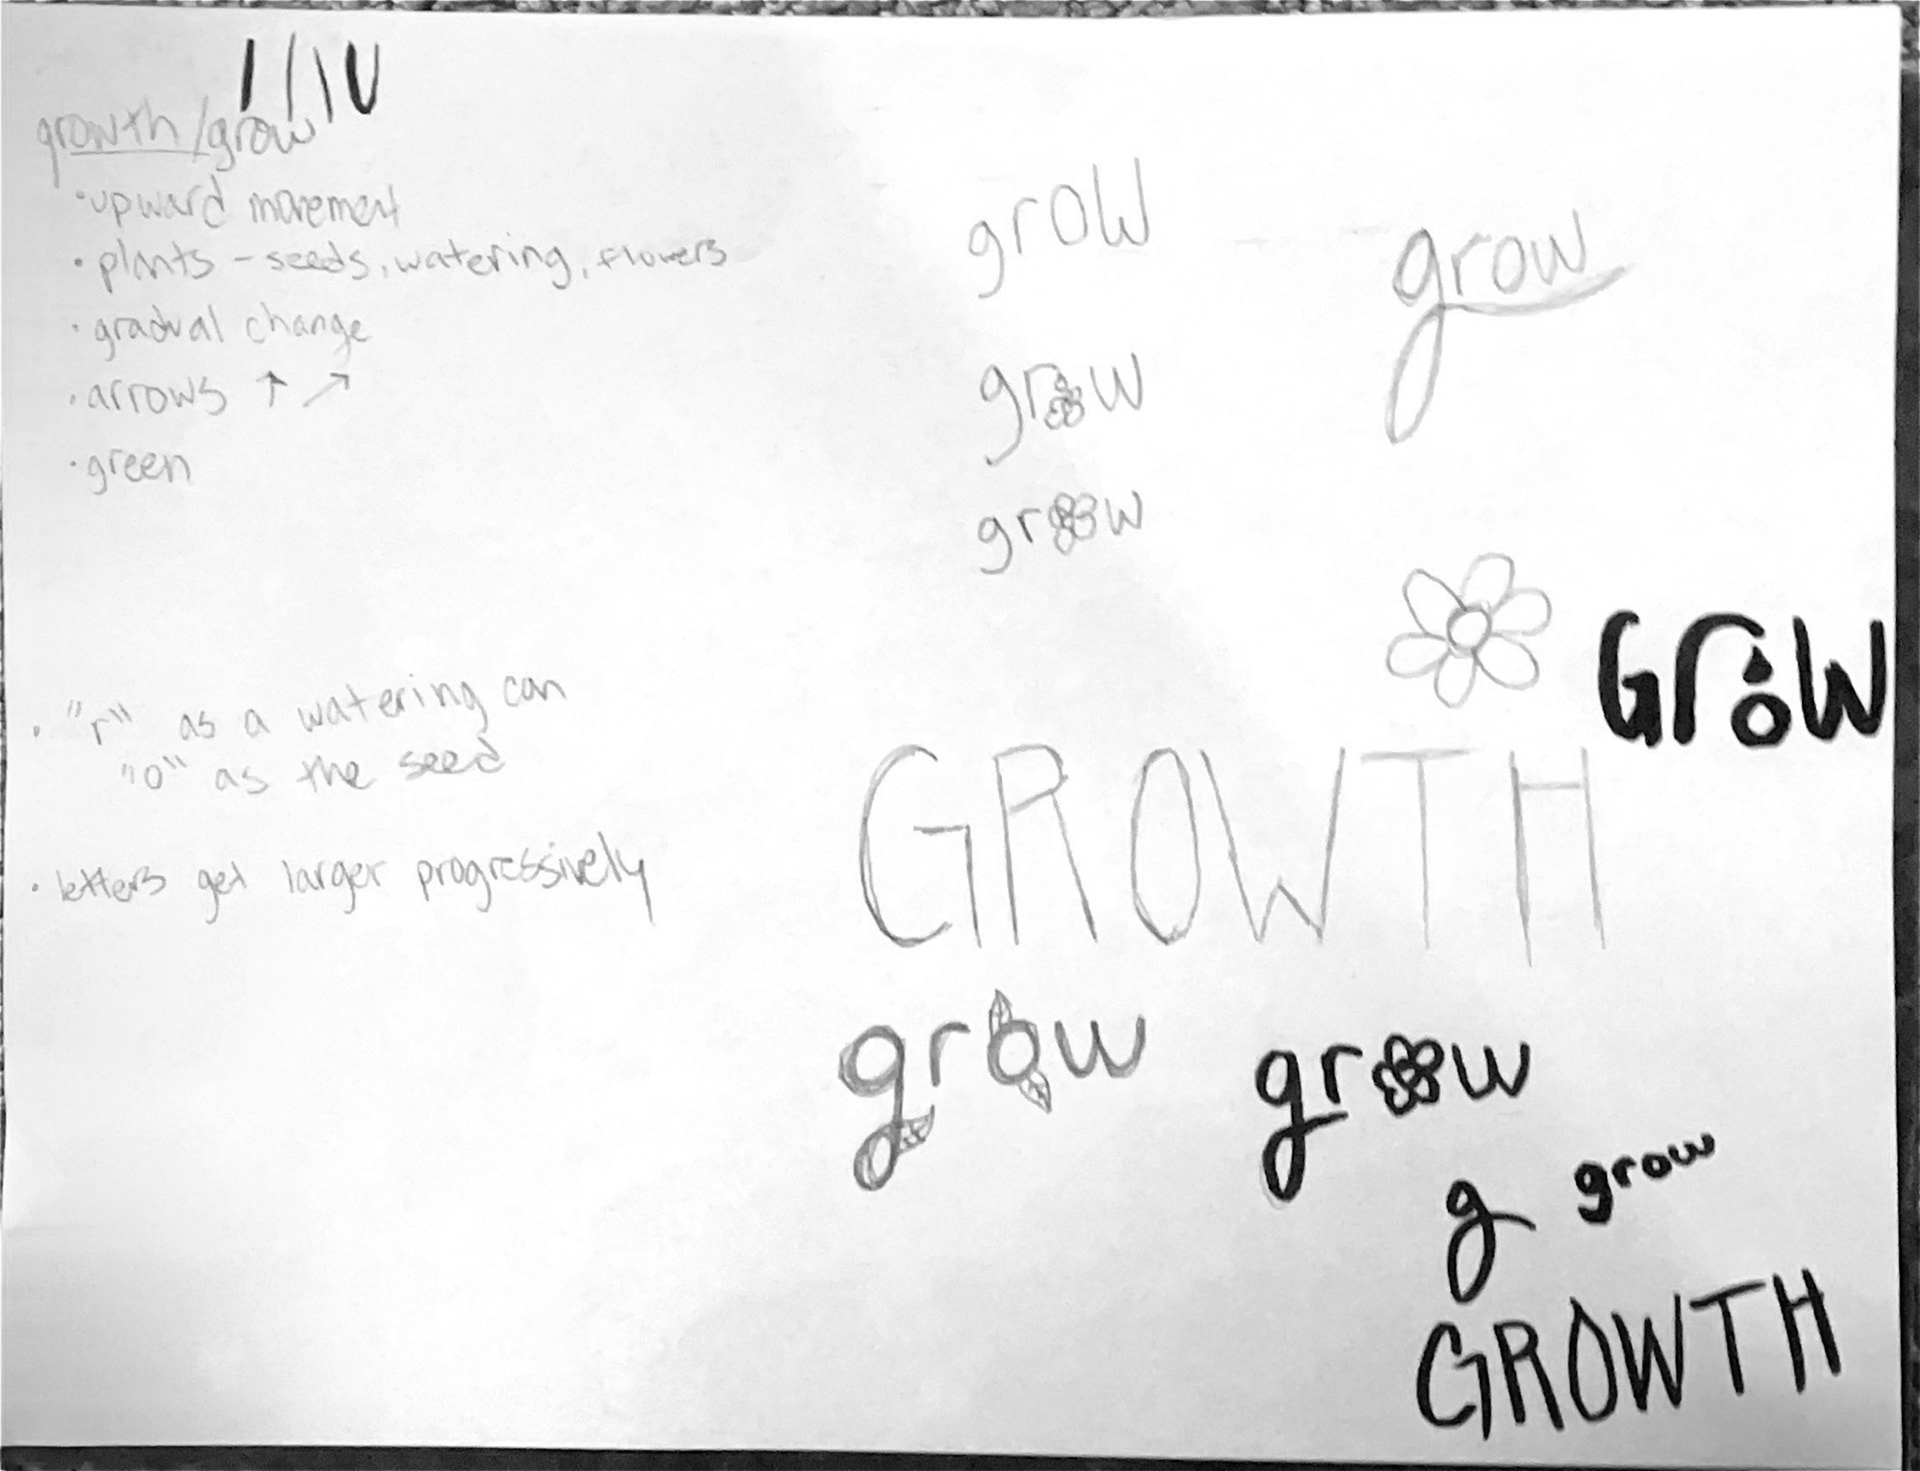 growth/grow
•upward movement
•plants - seeds, watering, flowers
•gradual change
•arrows ↑ ↗
•green
• "r" as a watering can
"o" as the seed
• letters get larger progressively
grow
grow
grow
grow
Grow
GROWTH
grow
grow
g
grow
GROWTH